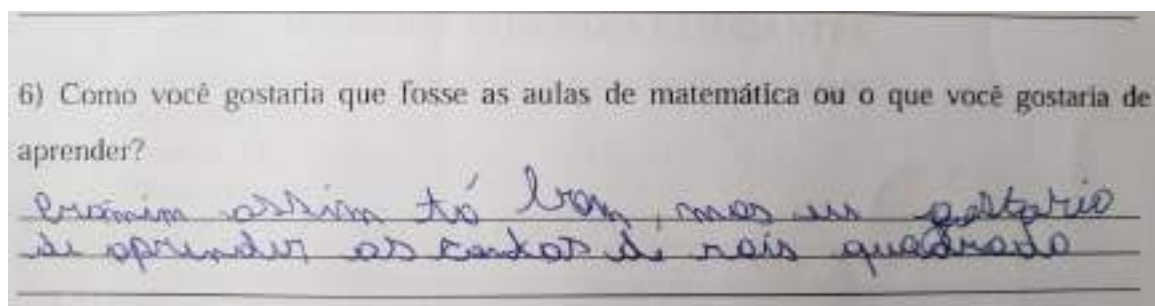 6) Como você gostaria que fosse as aulas de matemática ou o que você gostaria de
aprender?
assim tá bom, mas eu gostario
de aprender as contas de rais quadrado